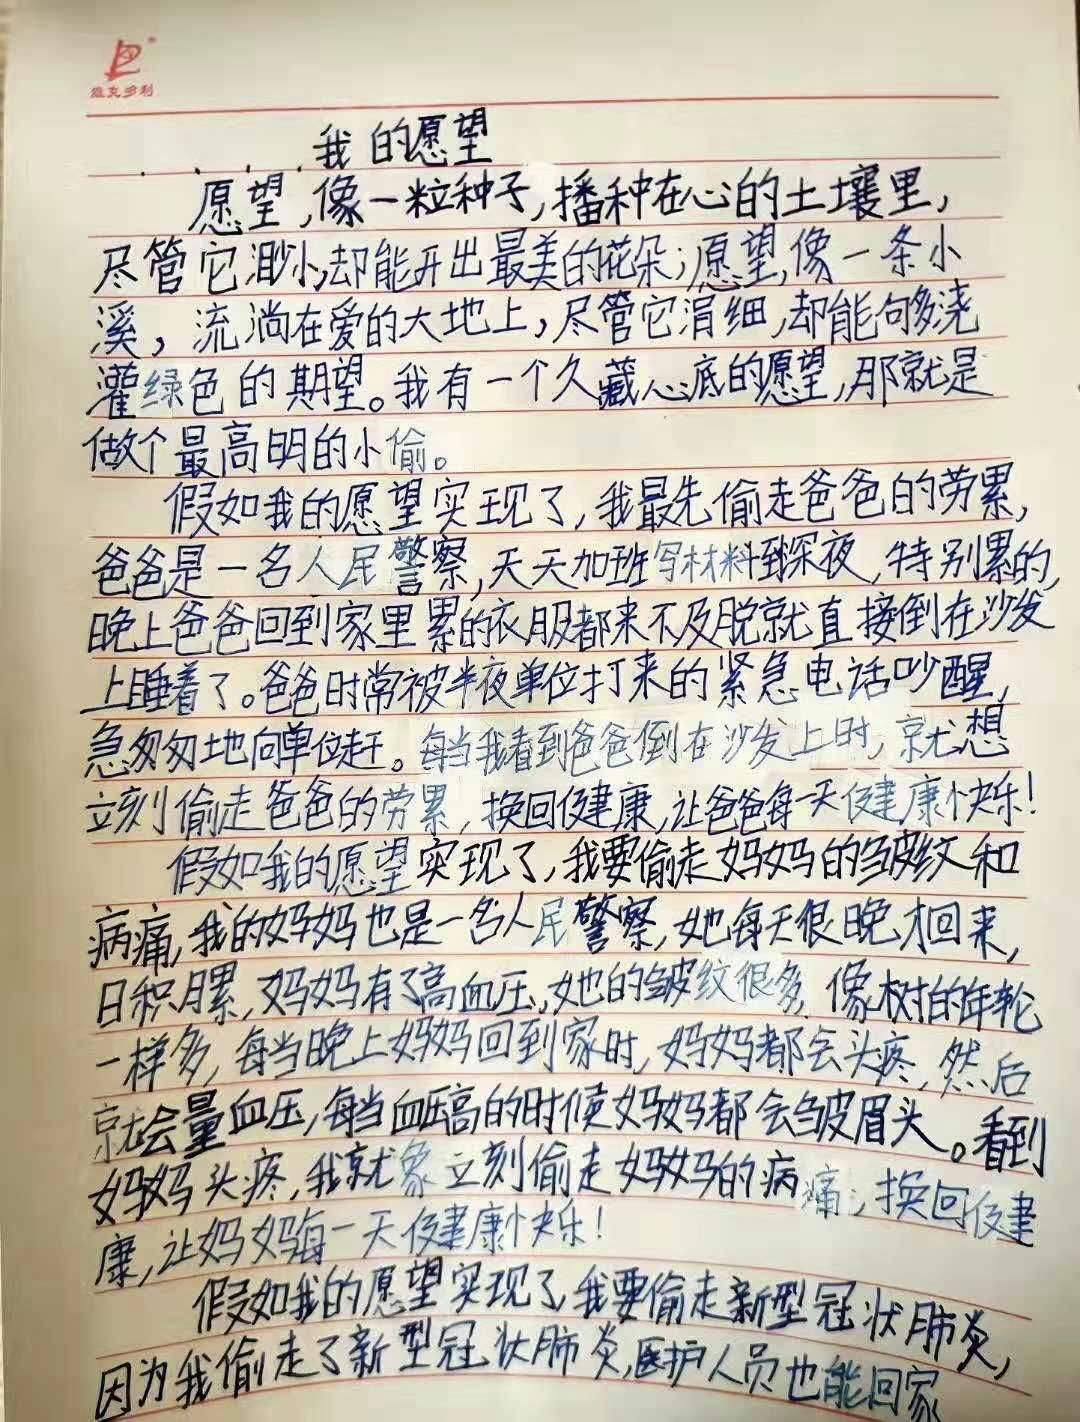 维克多利
我的愿望
愿望,像一粒种子,播种在心的土壤里,
尽管它渺小,却能开出最美的花朵;愿望,像一条小
溪,流淌在爱的大地上,尽管它涓细,却能够浇
灌绿色的期望。我有一个久藏心底的愿望,那就是
做个最高明的小偷。
假如我的愿望实现了,我最先偷走爸爸的劳累,
爸爸是一名人民警察,天天加班写材料到深夜,特别累的,
晚上爸爸回到家里累的衣服都来不及脱就直接倒在沙发
上睡着了。爸爸时常被半夜单位打来的紧急电话吵醒,
急匆匆地向单位赶。每当我看到爸爸倒在沙发上时,就想
立刻偷走爸爸的劳累,换回健康,让爸爸每一天健康快乐!
假如我的愿望实现了,我要偷走妈妈的皱纹和
病痛,我的妈妈也是一名人民警察,她每天很晚才回来,
日积月累,妈妈有了高血压,她的皱纹很多,像树的年轮
一样多,每当晚上妈妈回到家时,妈妈都会头疼,然后
就会量血压,每当血压高的时候妈妈都会皱眉头。看到
妈妈头疼,我就象立刻偷走妈妈的病痛,换回健
康,让妈妈每一天健康快乐!
假如我的愿望实现了,我要偷走新型冠状肺炎,
因为我偷走了新型冠状肺炎,医护人员也能回家